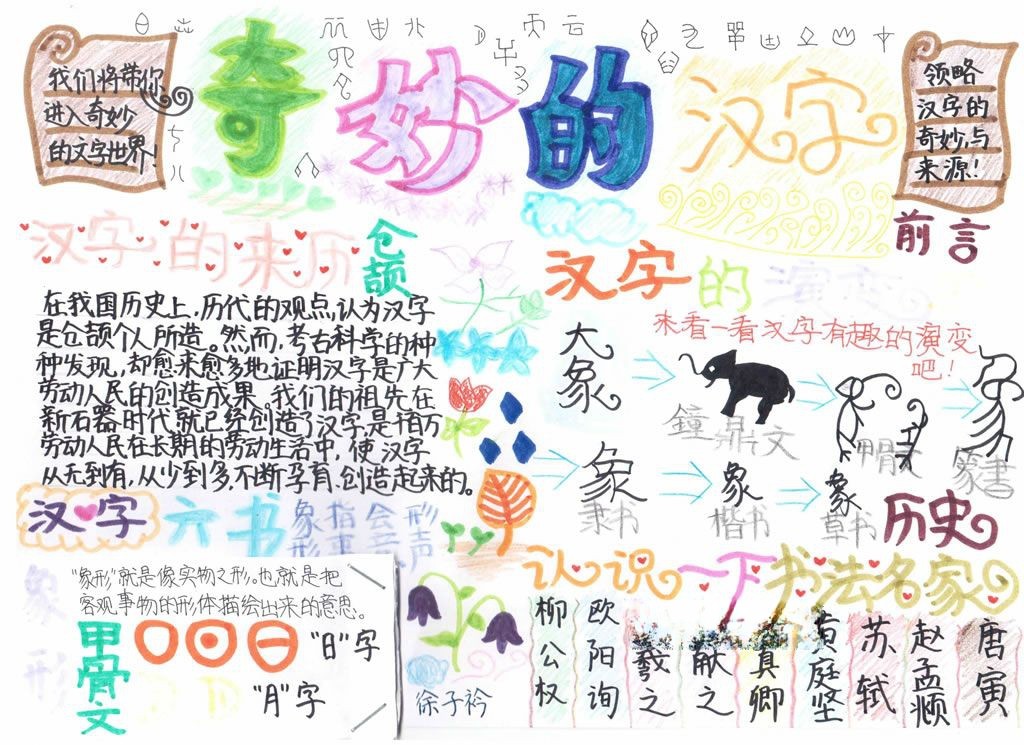 我们将带你
进入奇妙
的文字世界!
奇妙的汉字
领略
汉字的
奇妙与
来源!
前言
汉字的来历
仓颉
在我国历史上,历代的观点,认为汉字
是仓颉个人所造。然而,考古科学的种
种发现,却愈来愈多地证明汉字是广大
劳动人民的创造成果。我们的祖先在
新石器时代就已经创造了汉字,是千百万
劳动人民在长期的劳动生活中,使汉字
从无到有,从少到多,不断孕育、创造起来的。
汉字的演变
来看一看汉字有趣的演变
吧!
大象
鐘鼎文
甲骨文
篆書
象
隶书
象
楷书
象
草书
历史
汉字六书
象形
指事
会意
形声
象形
"象形"就是像实物之形。也就是把
客观事物的形体描绘出来的意思。
甲骨文
"日"字
"月"字
徐子衿
认识一下书法名家
柳公权
欧阳询
羲之
献之
真卿
黄庭坚
苏轼
赵孟頫
唐寅